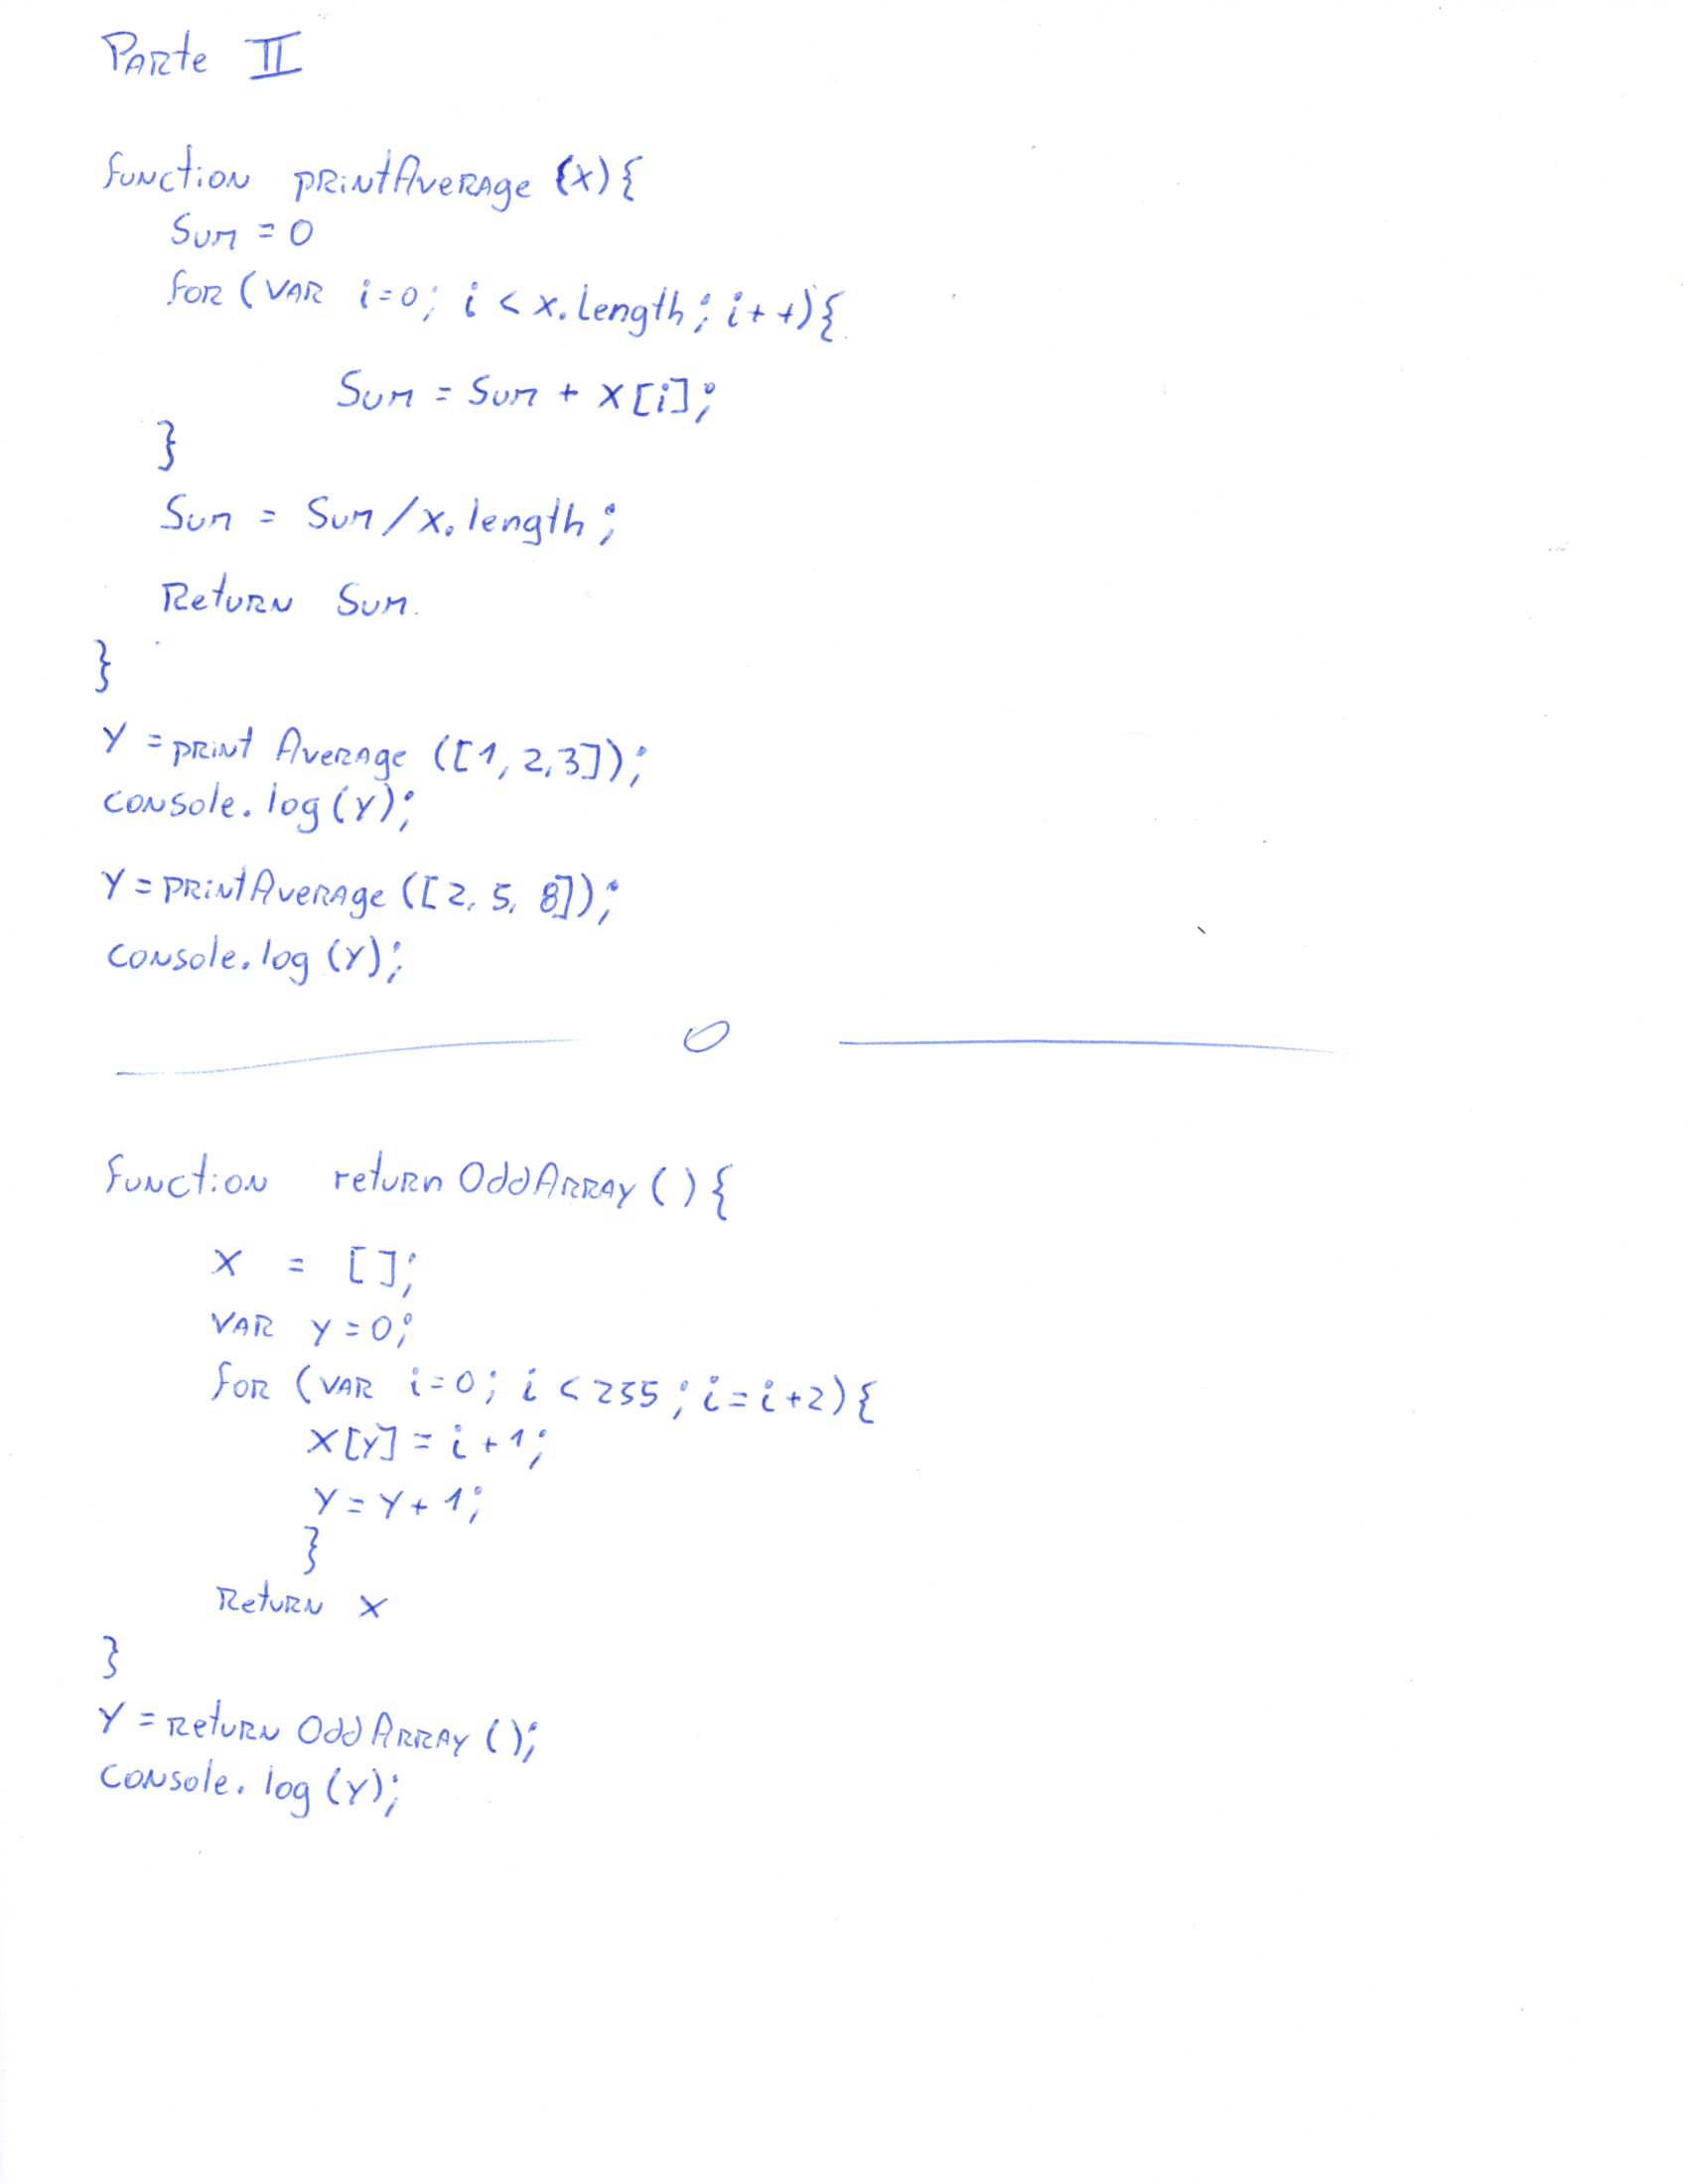 Parte II
function printAverage (x){
Sum = 0
for (var i=0; i < x.length; i++){
Sum = Sum + x[i];
}
Sum = Sum/x.length;
Return Sum.
}
Y = print Average ([1, 2, 3]);
console.log(Y);
Y = printAverage ([2, 5, 8]);
console.log (Y);
O
function return OddArray () {
X = [];
var y=0;
for (var i=0; i < 255; i=i+2){
X[Y] = i+1;
Y = Y + 1;
}
Return X
}
Y = return OddArray ();
console.log (Y);